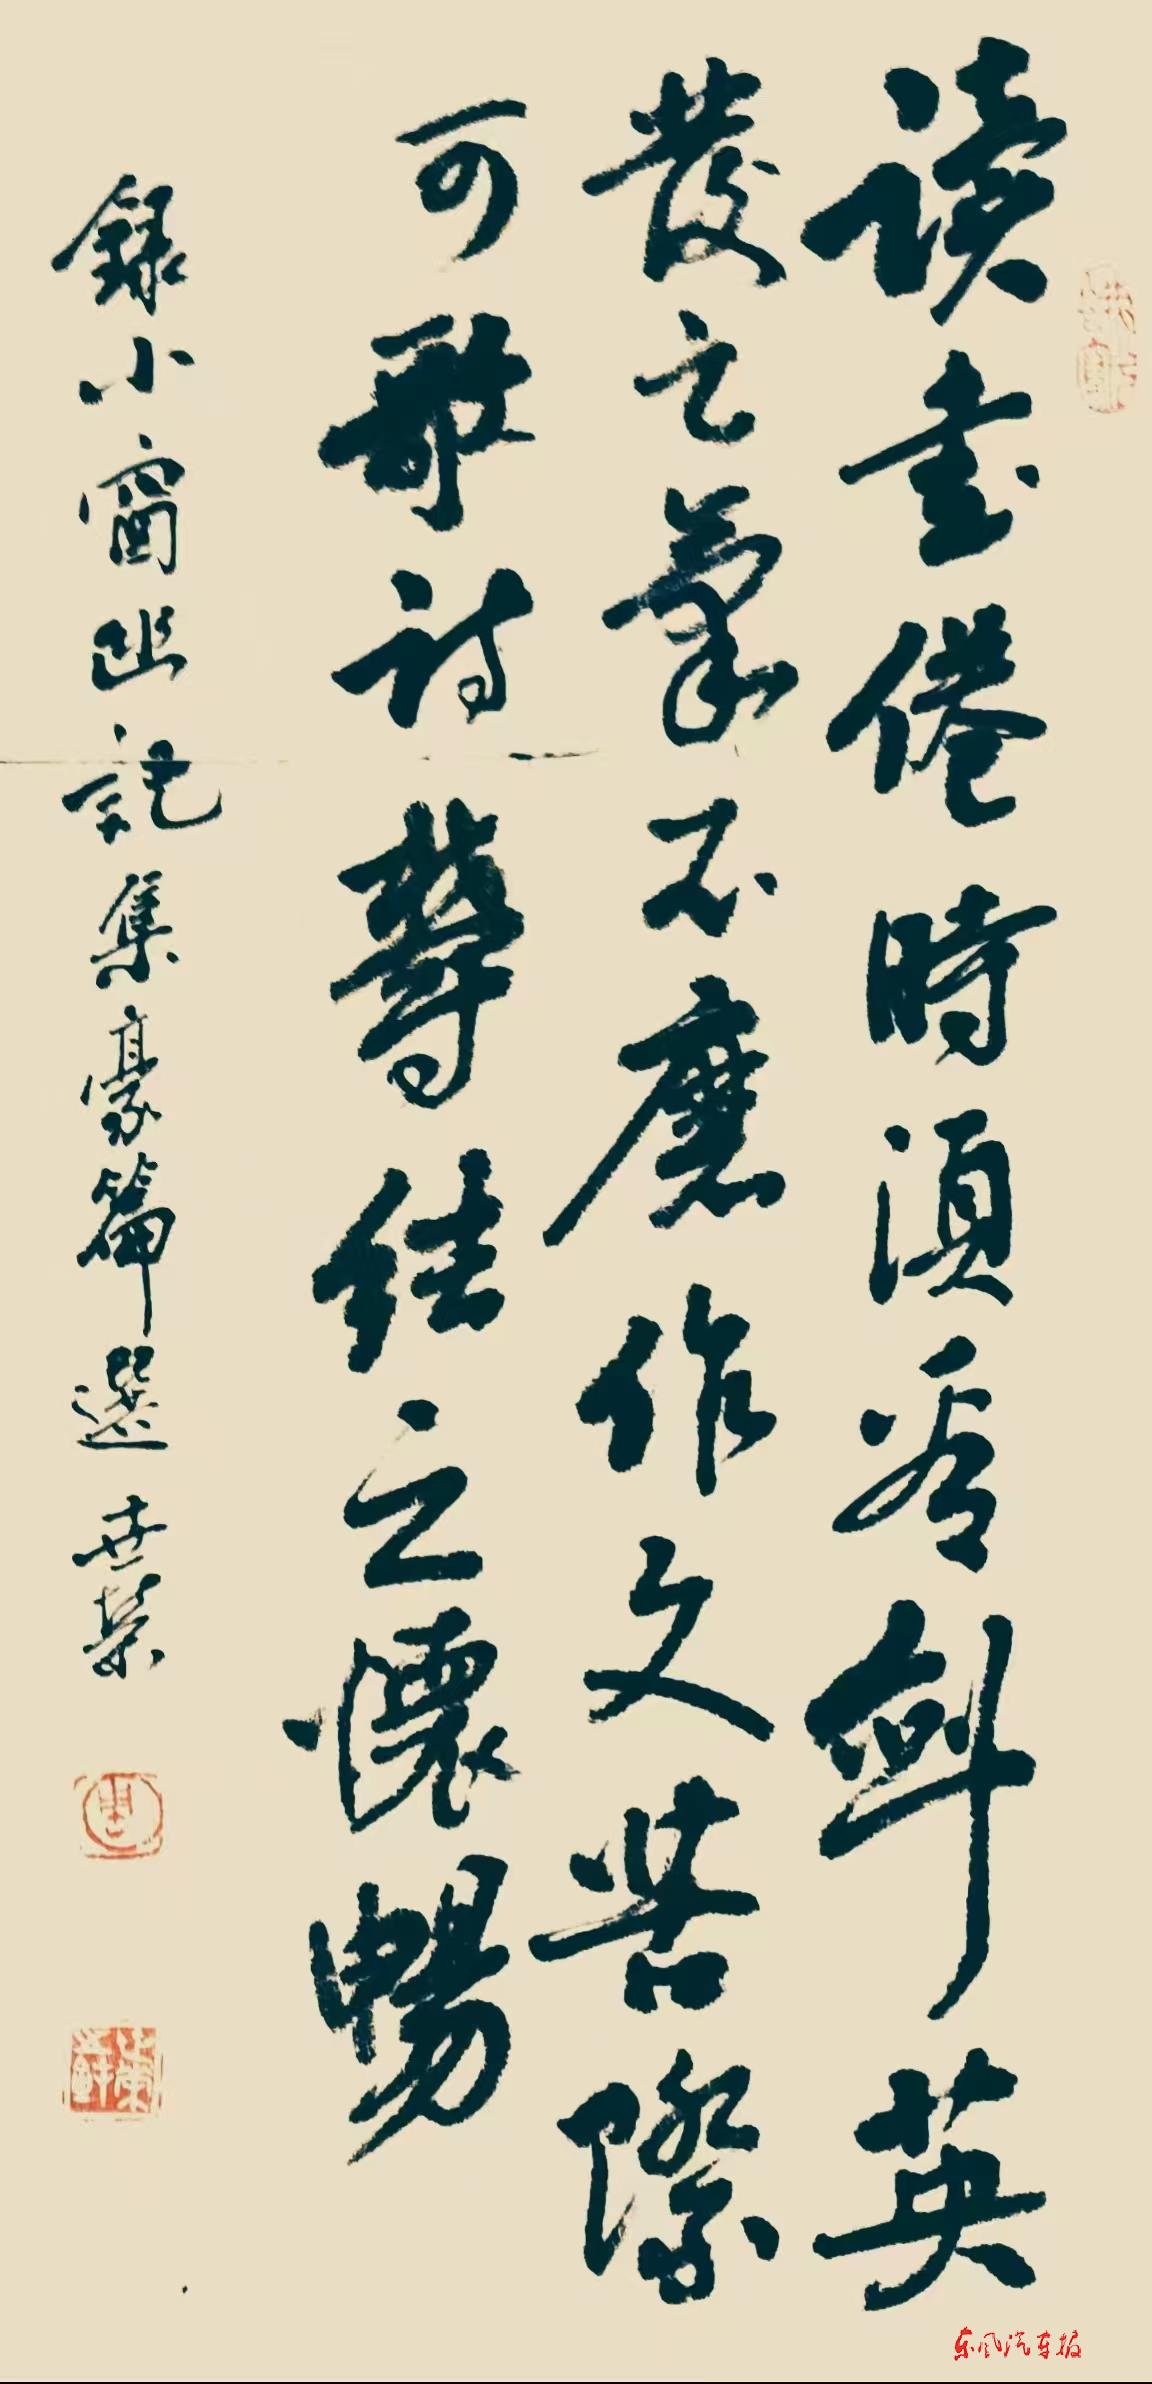 读書倦時須看劍英
發之氣不磨作文苦際
可歌詩鬱結之懷暢
錄小窗幽記集豪篇選 世榮
东风汽车报